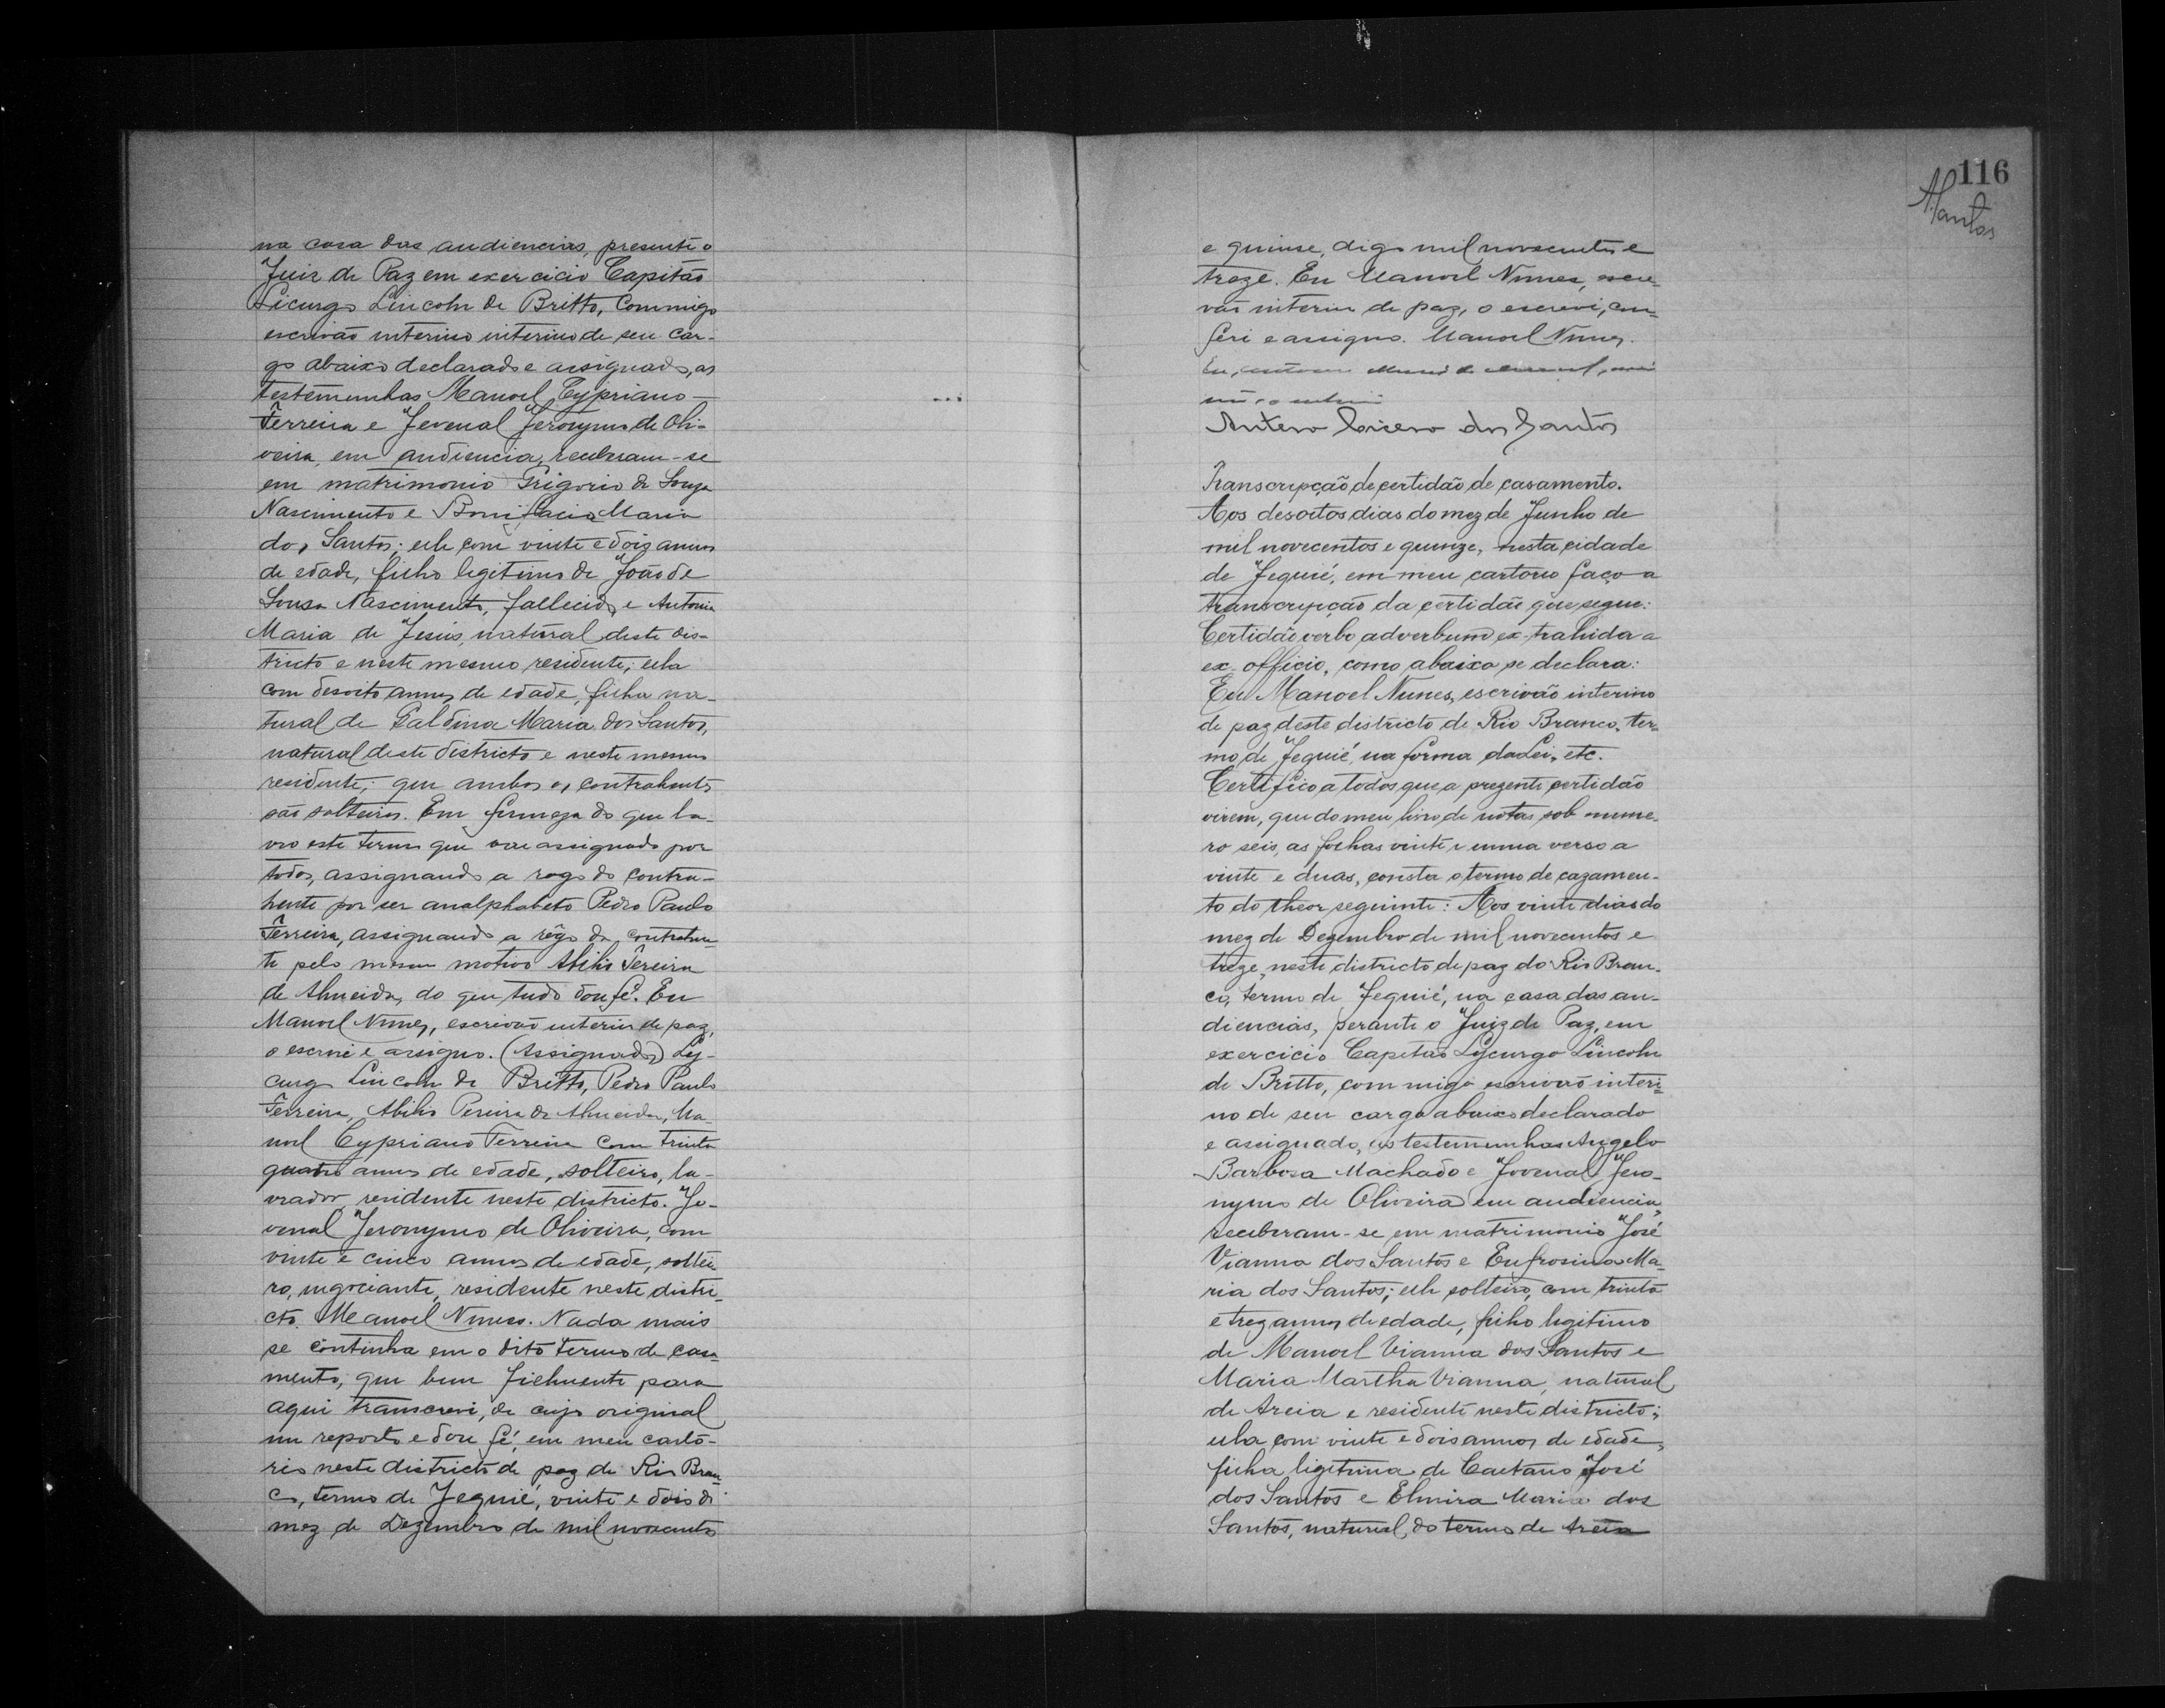 na casa das audiencias, presente o
Juiz de Paz em exercicio Capitão
Licurgo Lincoln de Britto, commigo
escrivão interino interino de seu car-
go abaixo declarado e assignado, as
testemunhas Manoel Cypriano
Ferreira e Jovenal Jeronymo de Oli-
veira, em audiencia, receberam-se
em matrimonio Grigorio de Souza
Nascimento e Bonifacia Maria
dos Santos; elle com vinte e dois annos
de edade, filho legitimo de João de
Sousa Nascimento, fallecido, e Antonia
Maria de Jesus, natural deste dis-
tricto e neste mesmo residente; ella
com desoito annos de edade, filha na-
tural de Galdina Maria dos Santos,
natural deste districto e neste mesmo
residente; que ambos os contrahentes
são solteiros. Em firmeza do que la-
vro este termo que vae assignado por
todos, assignando a rogo do contra-
hente por ser analphabeto Pedro Paulo
Ferreira, assignando a rôgo da contrahen-
te pelo mesmo motivo Abilio Pereira
de Almeida, do que tudo dou fé. Eu
Manoel Nunes, escrivão interino de paz,
o escrevi e assigno. (Assignados) Ly-
curgo Lincoln de Britto, Pedro Paulo
Ferreira, Abilio Pereira de Almeida, Ma-
noel Cypriano Ferreira com trinta
quatro annos de edade, solteiro, la-
vrador, residente neste districto. Jo-
venal Jeronymo de Oliveira, com
vinte e cinco annos de edade, soltei-
ro, negociante, residente neste distri-
cto. Manoel Nunes. Nada mais
se continha em o dito termo de casa-
mento, que bem fielmente para
aqui transcrevi, de cujo original
me reporto e dou fé, em meu carto-
rio neste districto de paz de Rio Bran-
co, termo de Jequié, vinte e dois do
mez de Dezembro de mil novecentos
116
e quinse, digo mil novecentos e
treze. Eu Manoel Nunes, escri-
vão interino de paz, o escrevi, con-
feri e assigno. Manoel Nunes.
Eu,
Antero Cicero dos Santos
Transcripção de certidão de casamento.
Aos desoitos dias do mez de Junho de
mil novecentos e quinze, nesta cidade
de Jequié, em meu cartorio faço a
transcripção da certidão que segue:
Certidão verbo adverbum ex-trahida a
ex-officio, como abaixo se declara:
Eu Manoel Nunes, escrivão interino
de paz deste districto de Rio Branco, ter-
mo de Jequié, na forma da Lei, etc.
Certifico a todos que a prezente certidão
virem, que do meu livro de notas sob nume-
ro seis, as folhas vinte e uma verso a
vinte e duas, consta o termo de cazamen-
to do theor seguinte: Aos vinte dias do
mez de Dezembro de mil novecentos e
treze, neste districto de paz do Rio Bran-
co, termo de Jequié, na casa das au-
diencias, perante o Juiz de Paz, em
exercicio Capitão Lycurgo Lincoln
de Britto, commigo escrivão interi-
no de seu cargo abaixo declarado
e assignado, as testemunhas Angelo
Barbosa Machado e Jovenal Jero-
nymo de Oliveira em audiencia,
receberam-se em matrimonio José
Vianna dos Santos e Eufrosina Ma-
ria dos Santos; elle solteiro, com trinta
e trez annos de edade, filho legitimo
de Manoel Vianna dos Santos e
Maria Martha Vianna, natural
de Areia e residente neste districto;
ella com vinte e dois annos de edade,
filha ligitima de Caetano José
dos Santos e Elmira Maria dos
Santos, natural do termo de Areia